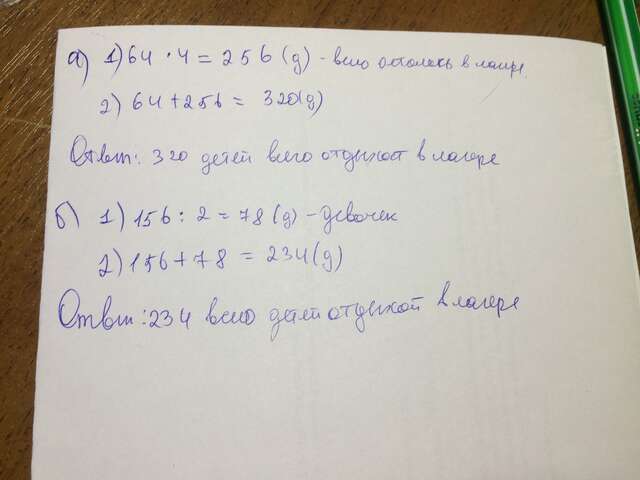 а) 1) 64 · 4 = 256 (д) - всего осталось в лагере
2) 64 + 256 = 320 (д)
Ответ: 320 детей всего отдыхают в лагере
б) 1) 156 : 2 = 78 (д) - девочек
2) 156 + 78 = 234 (д)
Ответ: 234 всего детей отдыхой в лагере